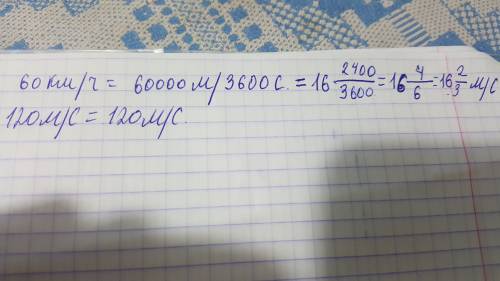 60 км/ч = 60000 м/3600 с. = 16 2400/3600 = 16 4/6 = 16 2/3 м/с
120 м/с = 120 м/с.